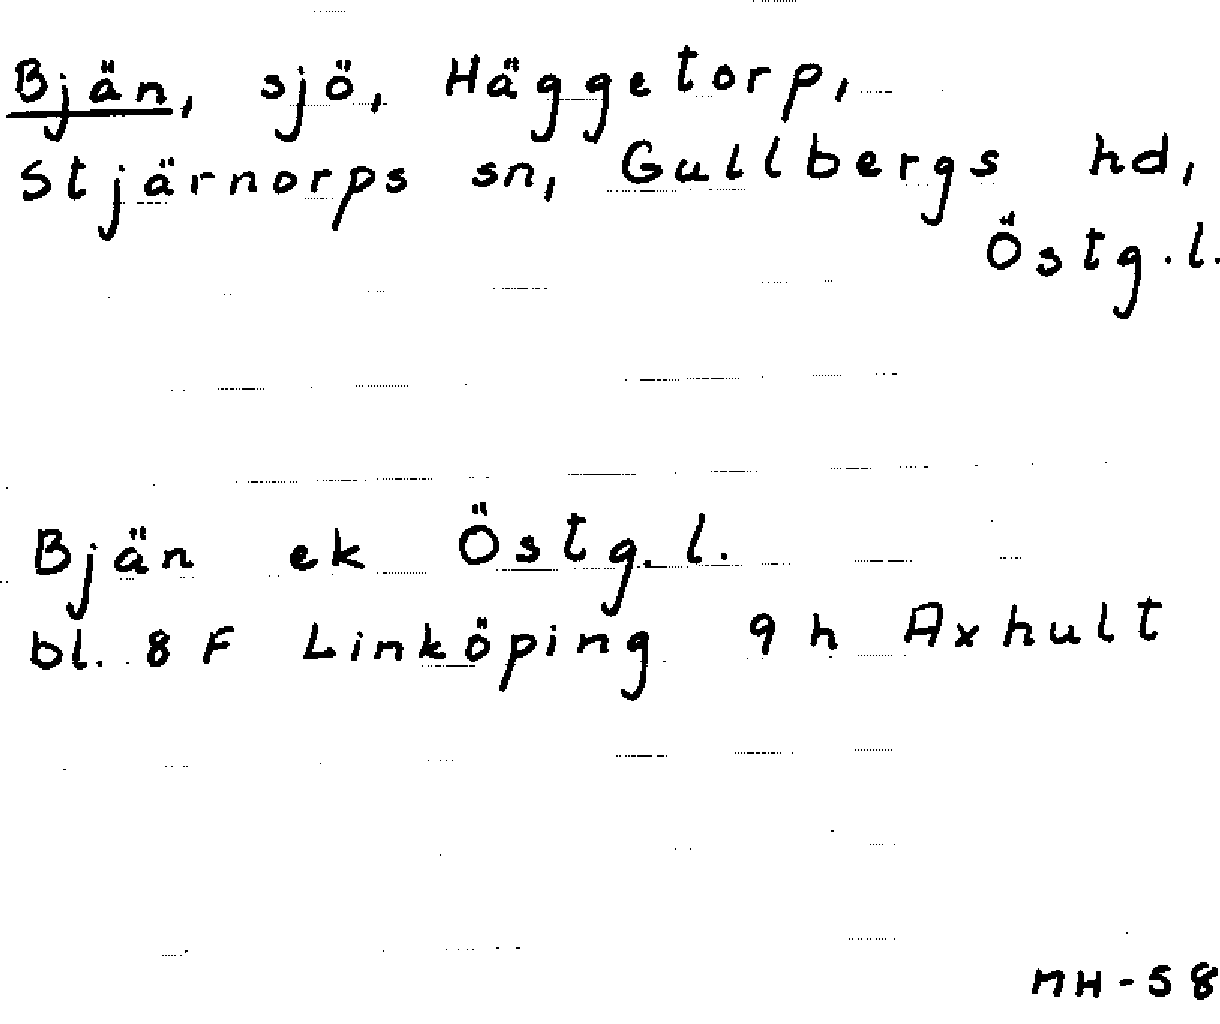 Bjän, sjö, Häggetorp,
Stjärnorps sn, Gullbergs hd,
Östg.l.
Bjän ek Östg.l.
bl. 8 F Linköping 9 h Axhult
MH-58